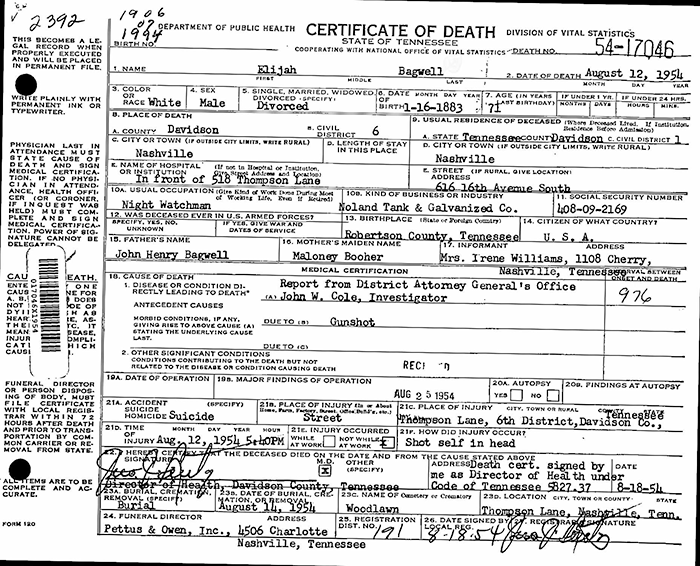 2392
1906
1994
DEPARTMENT OF PUBLIC HEALTH CERTIFICATE OF DEATH DIVISION OF VITAL STATISTICS
STATE OF TENNESSEE
BIRTH NO. COOPERATING WITH NATIONAL OFFICE OF VITAL STATISTICS DEATH NO. 54-17046
THIS BECOMES A LEGAL RECORD WHEN PROPERLY EXECUTED AND WILL BE PLACED IN PERMANENT FILE.
1. NAME Elijah Bagwell 2. DATE OF DEATH August 12, 1954
FIRST MIDDLE LAST MONTH DAY YEAR
WRITE PLAINLY WITH PERMANENT INK OR TYPEWRITER.
3. COLOR OR RACE White 4. SEX Male 5. SINGLE, MARRIED, WIDOWED, DIVORCED (SPECIFY) Divorced 6. DATE OF BIRTH MONTH DAY YEAR 1-16-1883 7. AGE (IN YEARS LAST BIRTHDAY) 71 IF UNDER 1 YR. MONTHS DAYS IF UNDER 24 HRS. HOURS MINS.
8. PLACE OF DEATH 9. USUAL RESIDENCE OF DECEASED (Where Deceased Lived. If Institution, Residence Before Admission)
A. COUNTY Davidson B. CIVIL DISTRICT 6 A. STATE Tennessee COUNTY Davidson C. CIVIL DISTRICT 1
C. CITY OR TOWN (IF OUTSIDE CITY LIMITS, WRITE RURAL) Nashville D. LENGTH OF STAY IN THIS PLACE D. CITY OR TOWN (IF OUTSIDE CITY LIMITS, WRITE RURAL) Nashville
PHYSICIAN LAST IN ATTENDANCE MUST STATE CAUSE OF DEATH AND SIGN MEDICAL CERTIFICATION. IF NO PHYSICIAN IN ATTENDANCE, HEALTH OFFICER (OR CORONER, IF INQUEST WAS HELD) MUST COMPLETE AND SIGN MEDICAL CERTIFICATION. POWER OF SIGNATURE CANNOT BE DELEGATED
E. NAME OF HOSPITAL OR INSTITUTION (If not in Hospital or Institution, Give Street Address and Location) In front of 518 Thompson Lane E. STREET (IF RURAL, GIVE LOCATION) ADDRESS 616 16th Avenue South
10A. USUAL OCCUPATION (Give Kind of Work Done During Most of Working Life, Even if Retired) Night Watchman 10B. KIND OF BUSINESS OR INDUSTRY Noland Tank & Galvanized Co. 11. SOCIAL SECURITY NUMBER 408-09-2169
12. WAS DECEASED EVER IN U.S. ARMED FORCES? SPECIFY, YES, NO, UNKNOWN IF YES, GIVE WAR AND DATES OF SERVICE 13. BIRTHPLACE (State or Foreign Country) Robertson County, Tennessee 14. CITIZEN OF WHAT COUNTRY? U. S. A.
15. FATHER'S NAME John Henry Bagwell 16. MOTHER'S MAIDEN NAME Maloney Booher 17. INFORMANT ADDRESS Mrs. Irene Williams, 1108 Cherry,
MEDICAL CERTIFICATION Nashville, Tennessee
INTERVAL BETWEEN ONSET AND DEATH
18. CAUSE OF DEATH
1. DISEASE OR CONDITION DIRECTLY LEADING TO DEATH* Report from District Attorney General's Office
(A) John W. Cole, Investigator 976
ANTECEDENT CAUSES
MORBID CONDITIONS, IF ANY, GIVING RISE TO ABOVE CAUSE (A) STATING THE UNDERLYING CAUSE LAST. DUE TO (B) Gunshot
DUE TO (C)
011046X1954
2. OTHER SIGNIFICANT CONDITIONS
CONDITIONS CONTRIBUTING TO THE DEATH BUT NOT RELATED TO THE DISEASE OR CONDITION CAUSING DEATH
FUNERAL DIRECTOR OR PERSON DISPOSING OF BODY, MUST FILE CERTIFICATE WITH LOCAL REGISTRAR WITHIN 72 HOURS AFTER DEATH AND PRIOR TO TRANSPORTATION BY COMMON CARRIER OR REMOVAL FROM STATE.
19A. DATE OF OPERATION 19B. MAJOR FINDINGS OF OPERATION AUG 25 1954 20A. AUTOPSY YES NO 20B. FINDINGS AT AUTOPSY
21A. ACCIDENT SUICIDE HOMICIDE (SPECIFY) Suicide 21B. PLACE OF INJURY (In or About Home, Farm, Factory, Street, Office Build'g, etc.) Street 21C. PLACE OF INJURY CITY, TOWN OR RURAL Tennessee
Thompson Lane, 6th District, Davidson Co.,
21D. TIME OF INJURY MONTH DAY YEAR HOUR Aug. 12, 1954 5:40PM 21E. INJURY OCCURRED WHILE AT WORK NOT WHILE AT WORK X 21F. HOW DID INJURY OCCUR? Shot self in head
22. I HEREBY CERTIFY THAT THE DECEASED DIED ON THE DATE AND FROM THE CAUSE STATED ABOVE
SIGNATURE M.D. X OTHER (SPECIFY) ADDRESS Death cert. signed by me as Director of Health under Code of Tennessee 5827.37 DATE 8-18-54
Director of Health, Davidson County, Tennessee
ALL ITEMS ARE TO BE COMPLETE AND ACCURATE.
23A. BURIAL, CREMATION, REMOVAL (SPECIFY) Burial 23B. DATE OF BURIAL, CREMATION, OR REMOVAL August 14, 1954 23C. NAME OF Cemetery or Crematory Woodlawn 23D. LOCATION CITY, TOWN OR COUNTY STATE Thompson Lane, Nashville, Tenn.
24. FUNERAL DIRECTOR ADDRESS Pettus & Owen, Inc., 4506 Charlotte 25. REGISTRATION DIST. NO. 191 26. DATE SIGNED BY LOCAL REG. 8-18-54 27. REGISTRAR'S SIGNATURE
FORM 120 Nashville, Tennessee